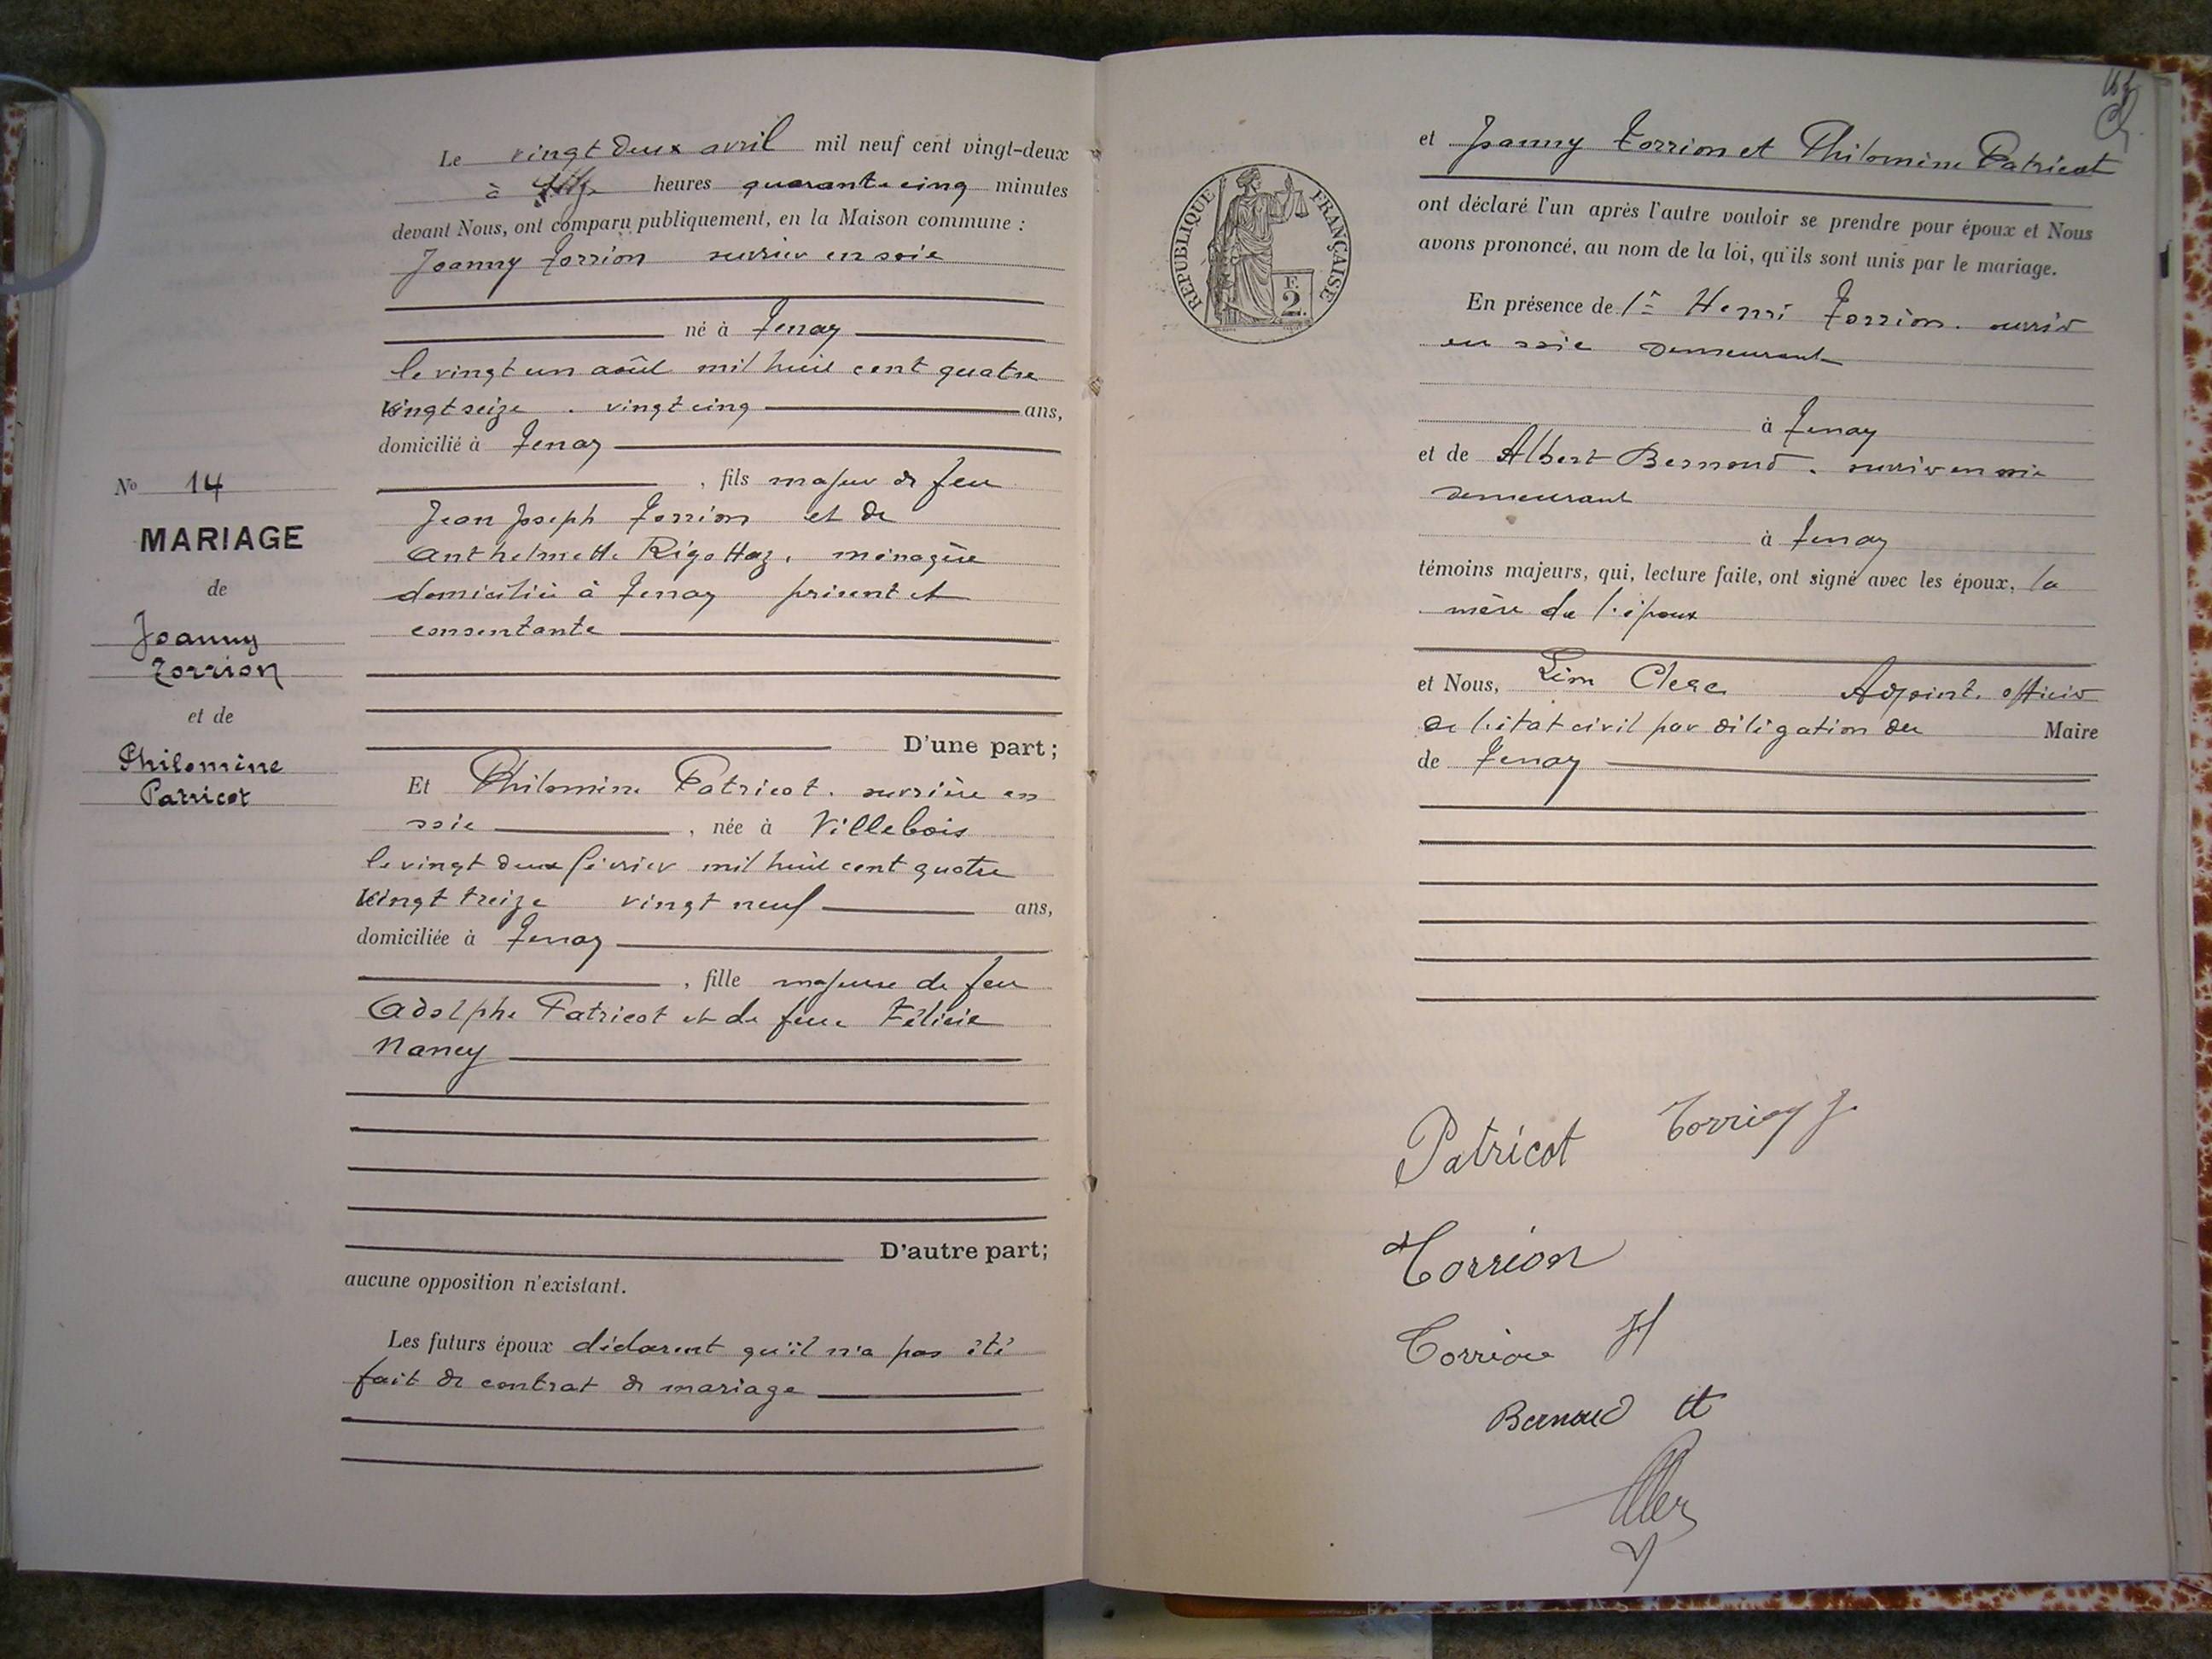 Le vingt deux avril mil neuf cent vingt-deux
à heures quarante cinq minutes
devant Nous, ont comparu publiquement, en la Maison commune :
Joanny Torrion ouvrier en soie
né à Tenay
le vingt un août mil huit cent quatre
vingt seize . vingt cinq ans,
domicilié à Tenay
, fils majeur de feu
Jean Joseph Torrion et de
Anthelmette Rigottaz, ménagère
domiciliée à Tenay présent et
consentante
D'une part;
No 14
MARIAGE
de
Joanny
Torrion
et de
Philomène
Patricot
Et Philomène Patricot. ouvrière en
soie , née à Villebois
le vingt deux février mil huit cent quatre
vingt treize vingt neuf ans,
domiciliée à Tenay
, fille majeure de feu
Adolphe Patricot et de feue Félicie
Nancy
D'autre part;
aucune opposition n'existant.
Les futurs époux déclarent qu'il n'a pas été
fait de contrat de mariage
RÉPUBLIQUE FRANÇAISE
F.
2.
et Joanny Torrion et Philomène Patricot
ont déclaré l'un après l'autre vouloir se prendre pour époux et Nous
avons prononcé, au nom de la loi, qu'ils sont unis par le mariage.
En présence de 1º Henri Torrion. ouvrier
en soie demeurant
à Tenay
et de Albert Bernoud. ouvrier en soie
demeurant
à Tenay
témoins majeurs, qui, lecture faite, ont signé avec les époux, la
mère de l'époux
et Nous, Clerc Adjoint. officier
de l'état civil par délégation du Maire
de Tenay
Patricot Torrion J.
Torrion
Torrion H
Bernoud At